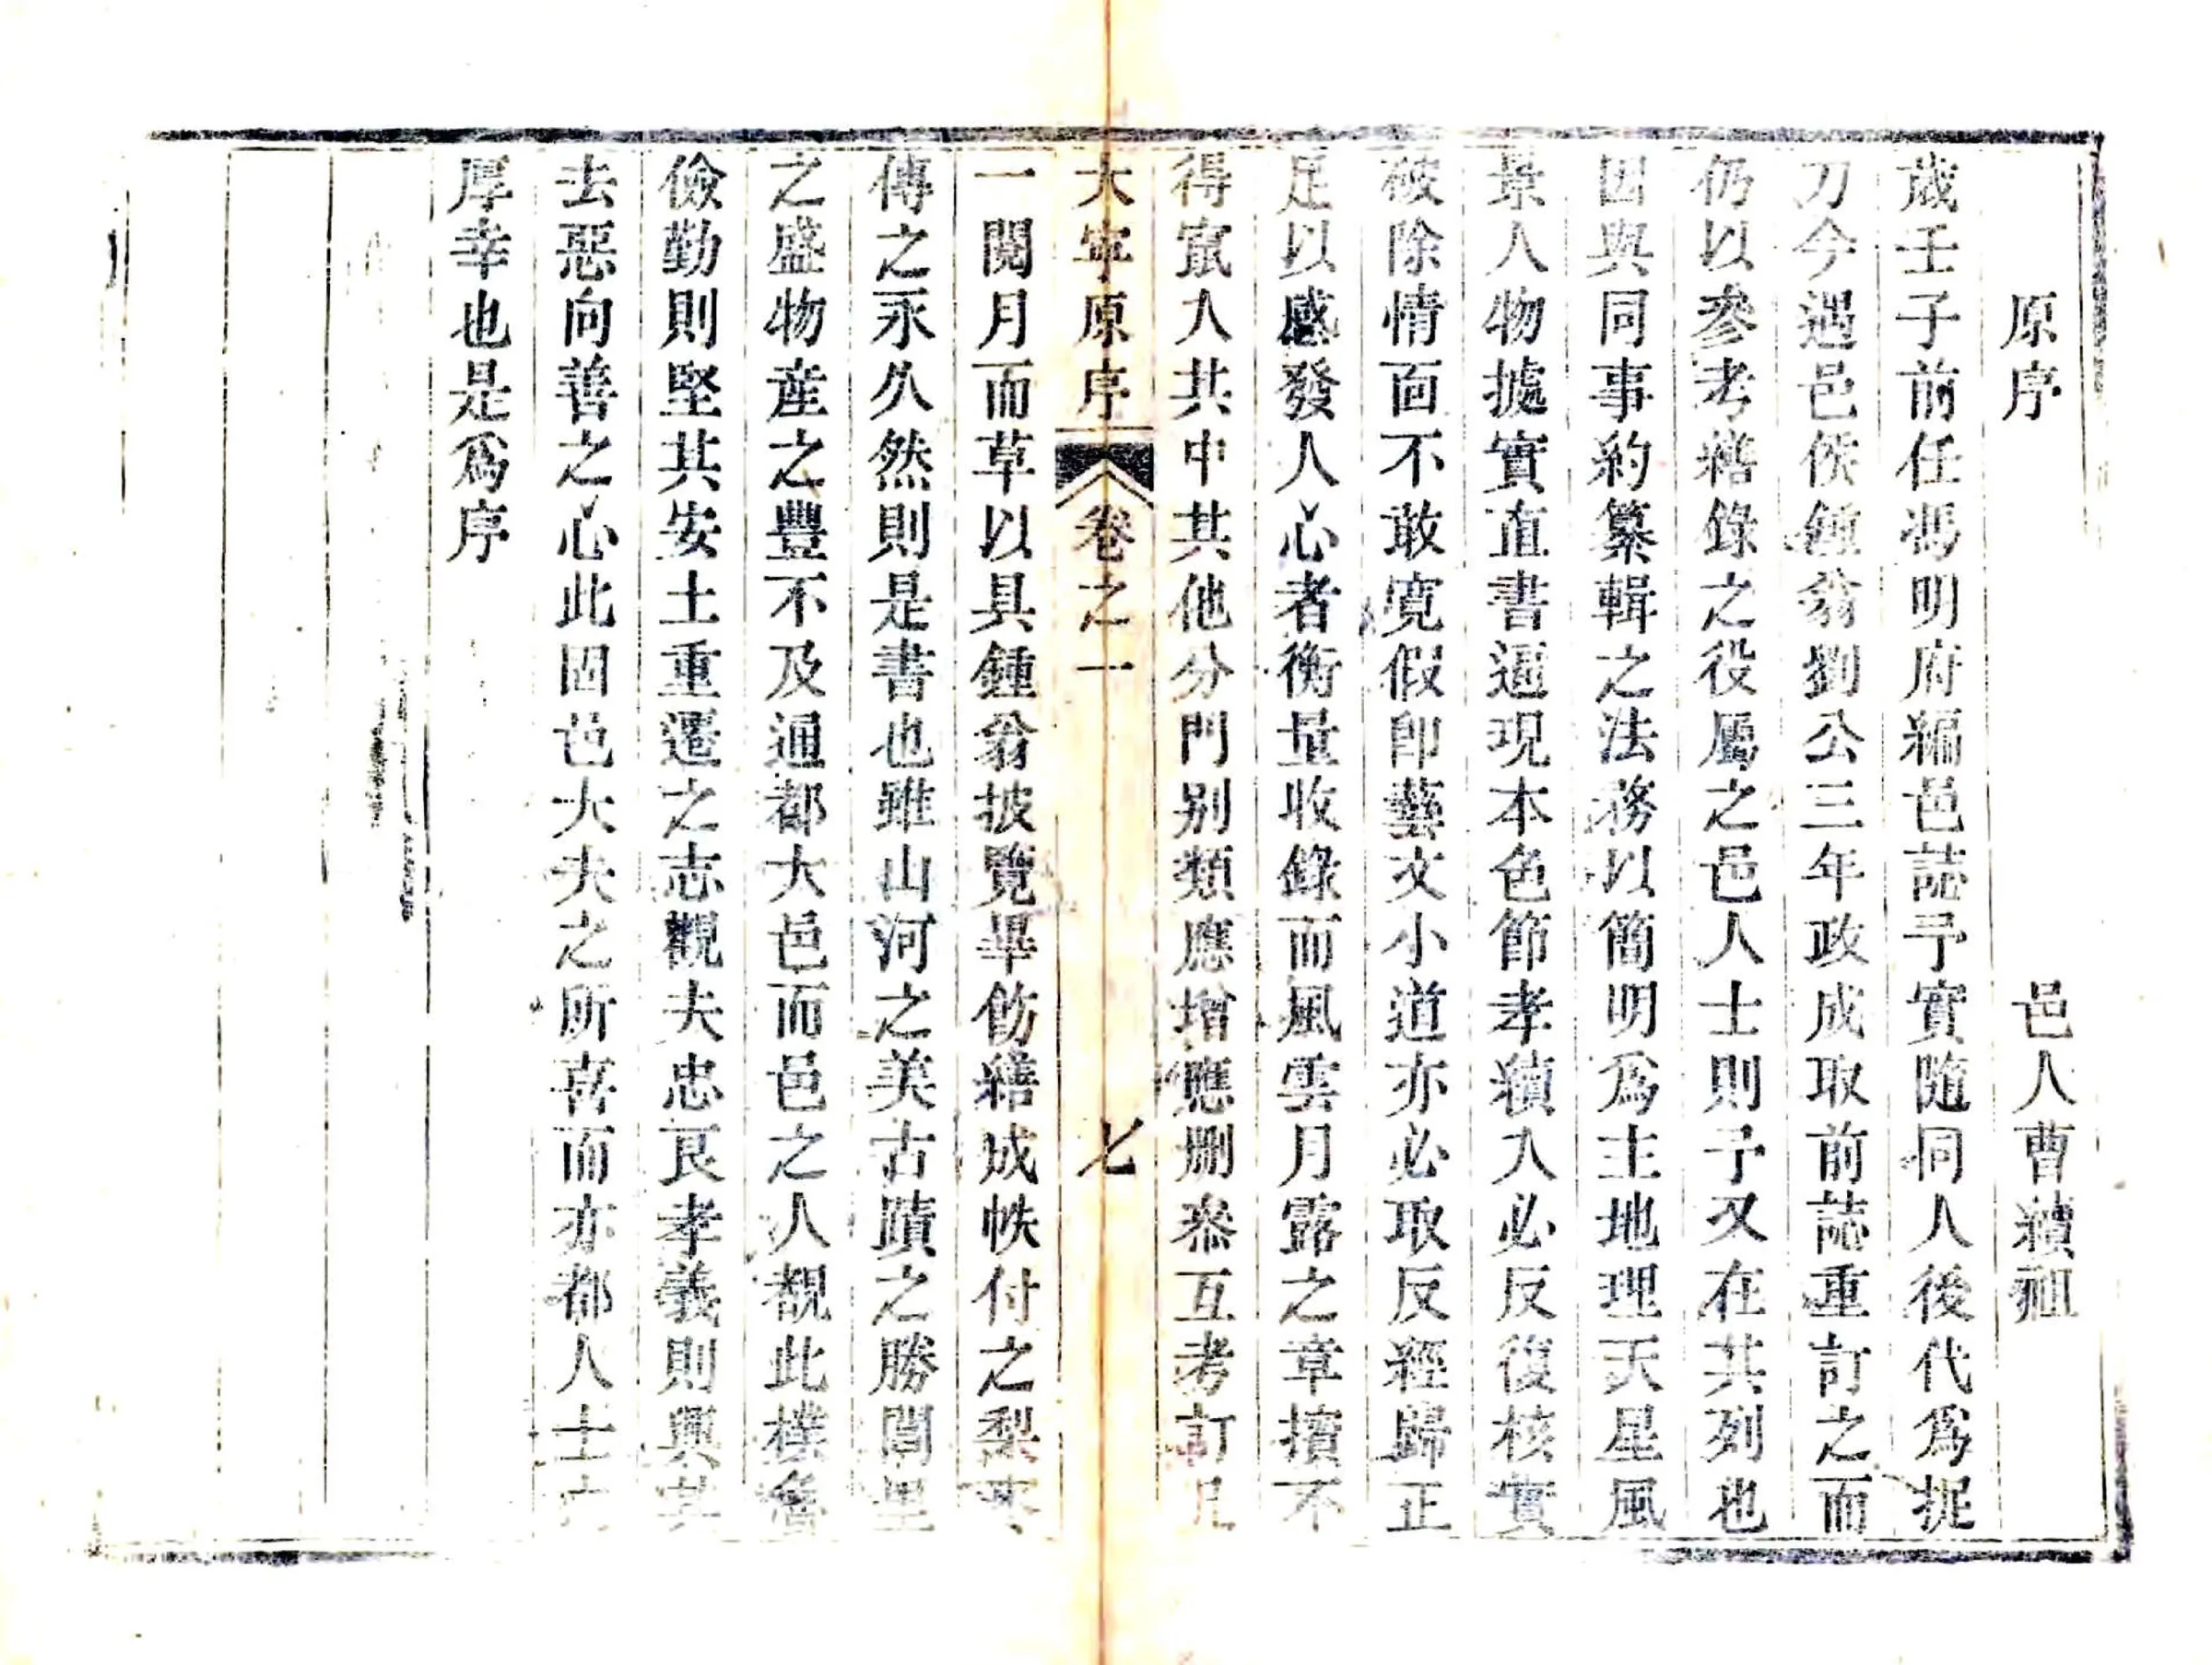 原序　邑人曹續祖
歲壬子前任馮明府編邑誌予實隨同人後代爲捉
刀今遇邑侯鍾翁劉公三年政成取前誌重訂之而
仍以參考繕錄之役屬之邑人士則予又在其列也
因與同事約纂輯之法務以簡明爲主地理天星風
景人物據實直書逼現本色節孝續入必反復核實
破除情面不敢寬假卽藝文小道亦必取反經歸正
足以感發人心者衡量收錄而風雲月露之章擯不
得竄入其中其他分門别類應增應刪叅互考訂凡
大寧原序　卷之一　七
一閱月而草以具鍾翁披覽畢飭繕成帙付之梨棗
傳之永久然則是書也雖山河之美古蹟之勝閭里
之盛物產之豐不及通都大邑而邑之人覩此樸魯
儉勤則堅其安土重遷之志觀夫忠良孝義則興其
去惡向善之心此固邑大夫之所喜而亦都人士之
厚幸也是爲序